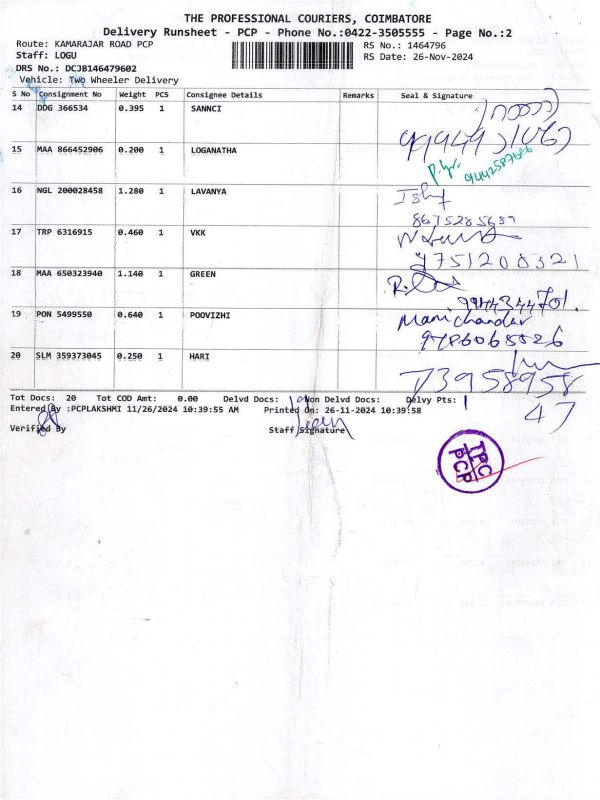 THE PROFESSIONAL COURIERS, COIMBATORE
Delivery Runsheet - PCP - Phone No.:0422-3505555 - Page No.:2
Route: KAMARAJAR ROAD PCP RS No.: 1464796
Staff: LOGU RS Date: 26-Nov-2024
DRS No.: DCJB146479602
Vehicle: Two Wheeler Delivery
S No Consignment No Weight PCS Consignee Details Remarks Seal & Signature
14 DDG 366534 0.395 1 SANNCI
15 MAA 866452906 0.200 1 LOGANATHA
9442587686
16 NGL 200028458 1.280 1 LAVANYA
8675285689
17 TRP 6316915 0.460 1 VKK
9751208321
18 MAA 650323940 1.140 1 GREEN
9944344701.
19 PON 5499550 0.640 1 POOVIZHI Manichandar
9786068526
20 SLM 359373045 0.250 1 HARI
73958958
47
Tot Docs: 20 Tot COD Amt: 0.00 Delvd Docs: Non Delvd Docs: Delvy Pts:
Entered By :PCPLAKSHMI 11/26/2024 10:39:55 AM Printed On: 26-11-2024 10:39:58
Verified By Staff Signature
TPC
PCP